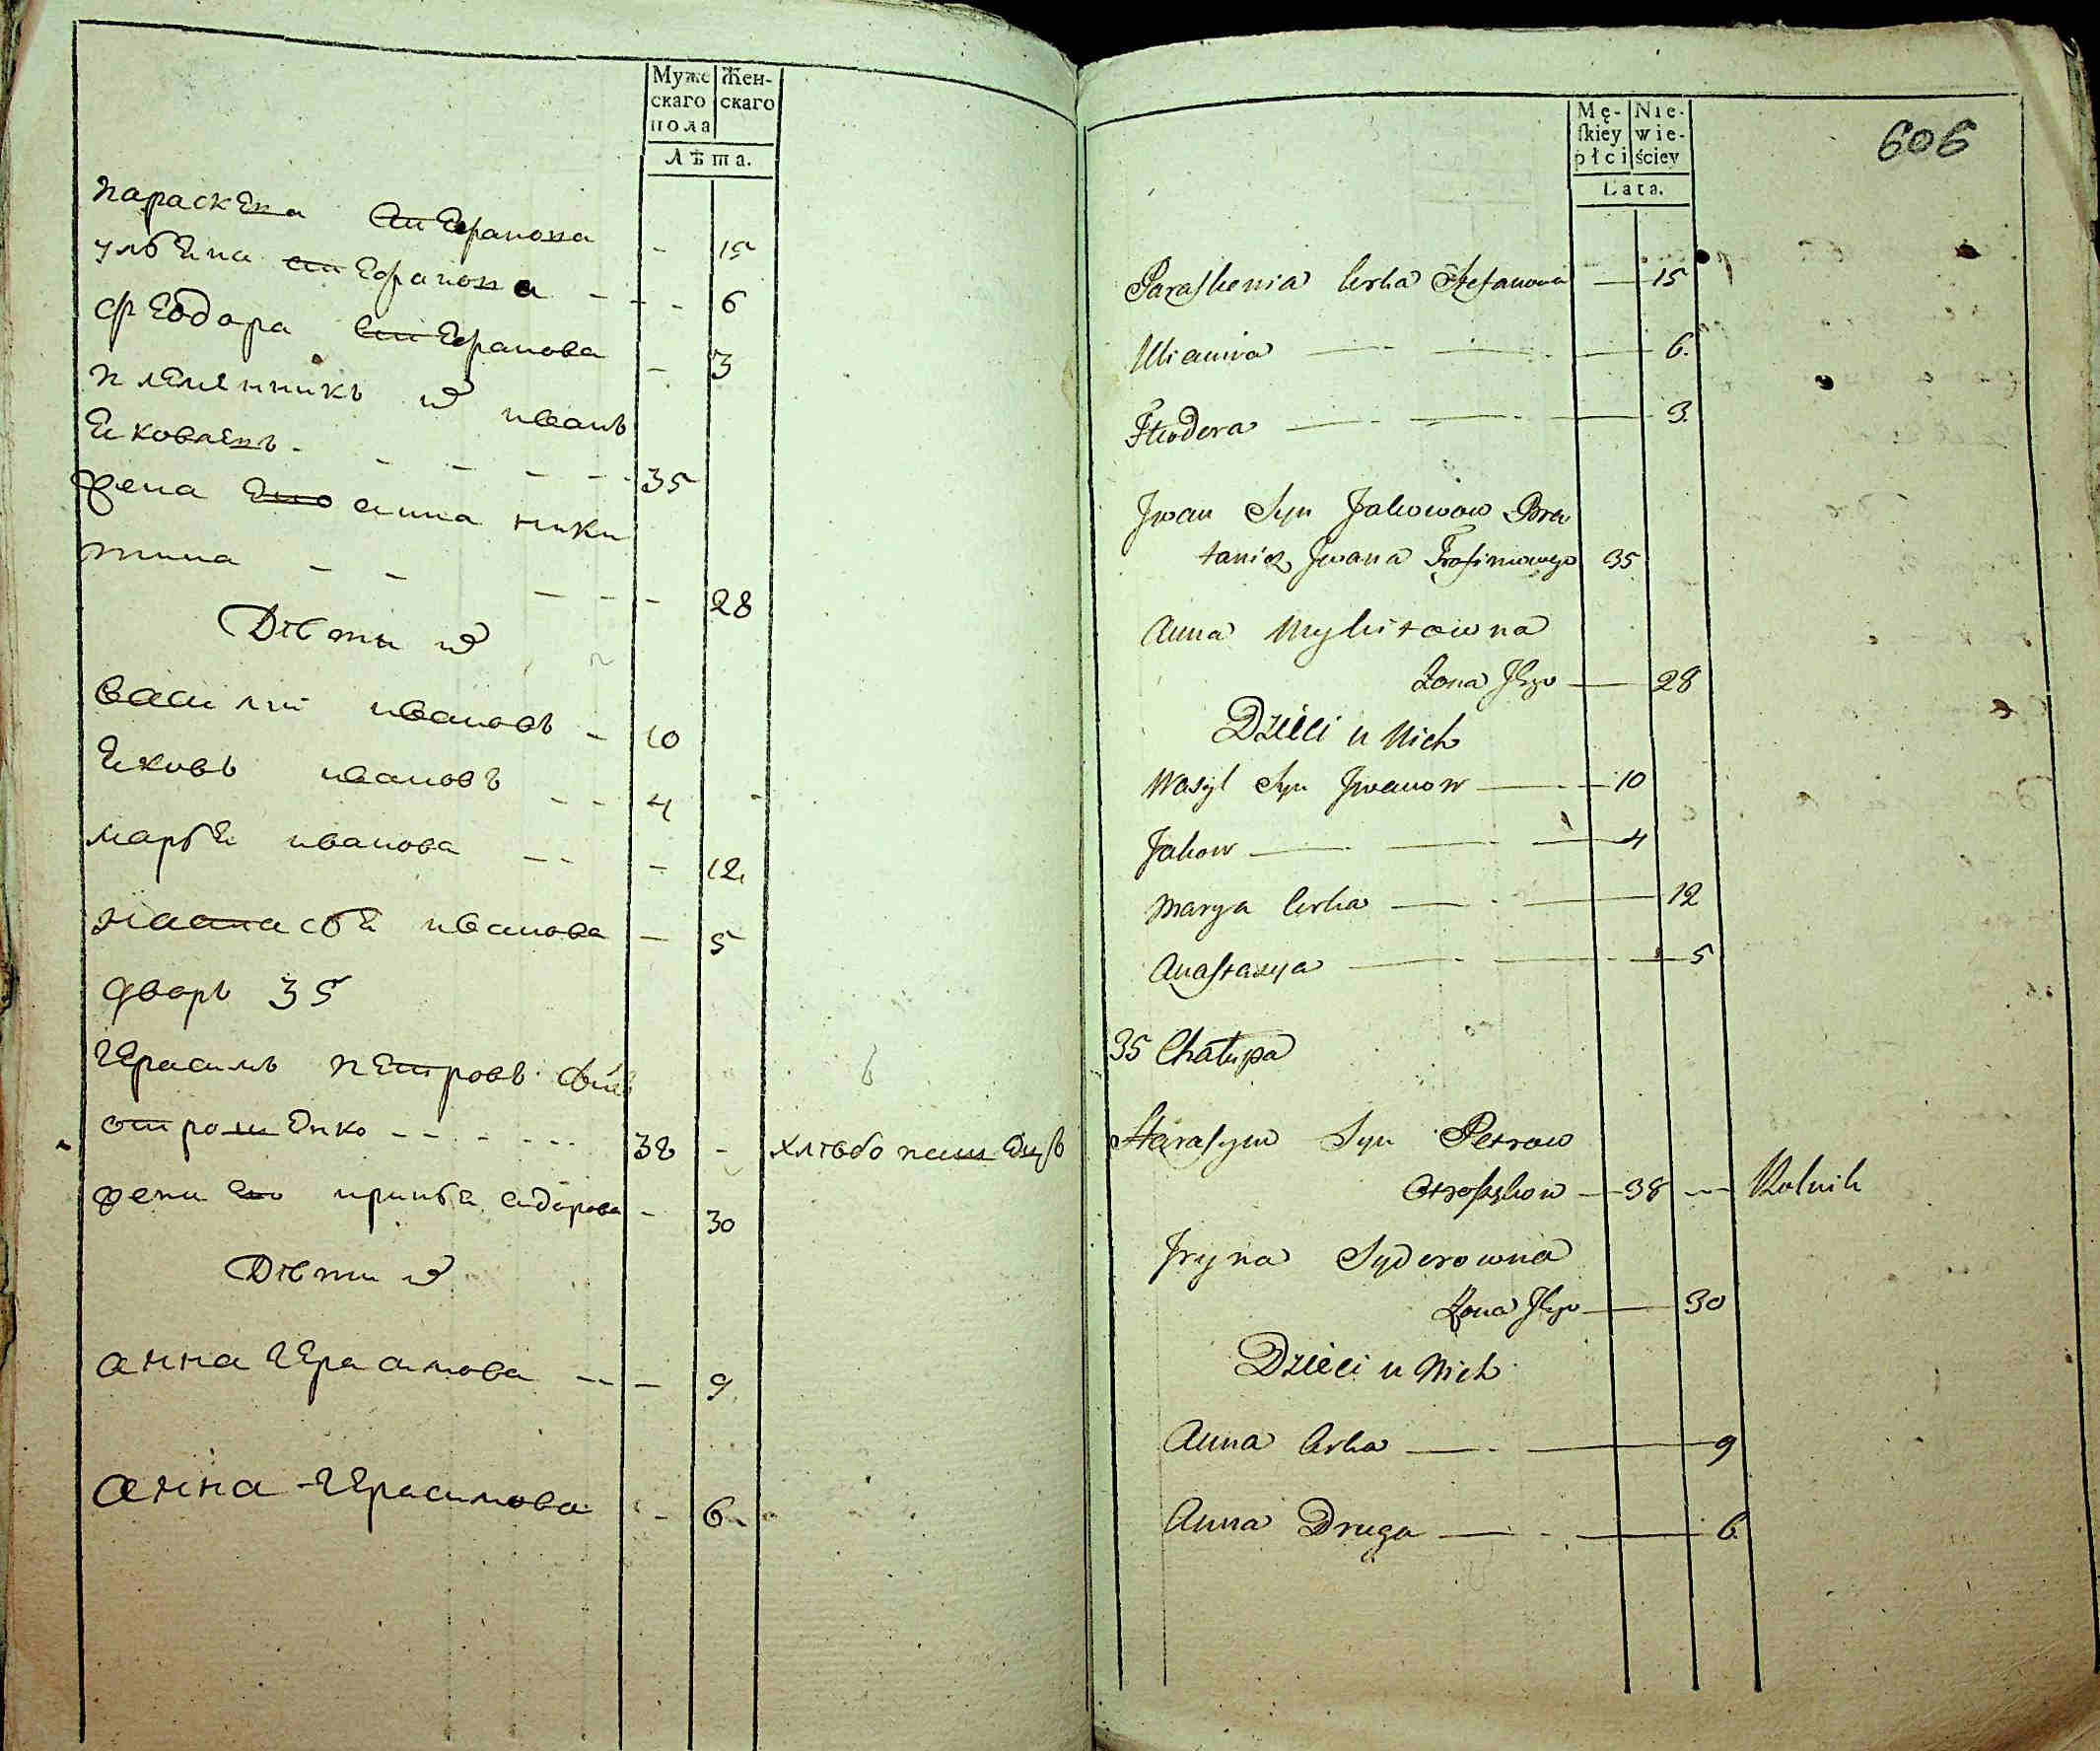 Муже Жен-
скаго скаго
пола
Лѣта.
параскева стефанова - 15
ульѣна стефанова - - - 6
феодора стефанова - 3
племенникъ иванъ
ѣковлевъ - - - - - 35
жена ево анна ники
тина - - - - - 28
Дѣти
василий ивановъ - 10
ѣковъ ивановъ - - 4 -
марьѣ иванова - - - 12
настасьѣ иванова - 5
дворъ 35
герасимъ петровъ
38 - хлѣбопашецъ
жена ево ириньѣ сидорова - 30
Дѣти
анна герасимова - - - 9
анна герасимова - 6
Mę- Nie-
ſkiey wie-
płci ściey
Lata.
606
Paraſkewia Corka Stefanowa — 15
Ulianna — — — 6.
Fteodora — — — 3.
Jwan Syn Jakowow Bra
tanicz Jwana Trofimowego 35
Anna Mykitowna
Zona Jego — 28
Dzieci u Nich
Wasyl Syn Jwanow — 10
Jakow — — — 4
Marya Corka — — 12
Anaſtazya — — — 5
35 Chałupa
Harasym Syn Petrow
38 — Rolnik
Jryna Syderowna
Zona Jego — 30
Dzieci u Nich
Anna Corka — — 9
Anna Druga — — 6.